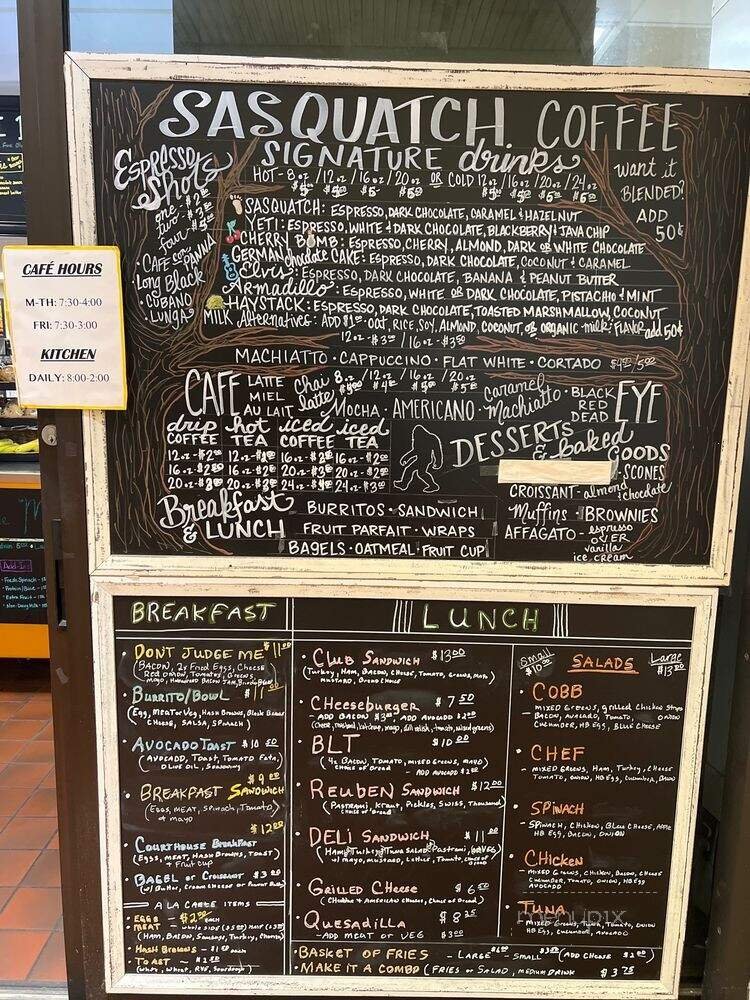 SASQUATCH COFFEE
SIGNATURE drinks
HOT - 8oz / 12oz / 16oz / 20oz OR COLD 12oz / 16oz / 20oz / 24oz
want it
BLENDED?
ADD
50¢
Espresso
Shots
one
two
four
• CAFE con PANNA
• Long Black
• CUBANO
• LUNGA
SASQUATCH: ESPRESSO, DARK CHOCOLATE, CARAMEL & HAZELNUT
YETI: ESPRESSO, WHITE & DARK CHOCOLATE, BLACKBERRY & JAVA CHIP
CHERRY BOMB: ESPRESSO, CHERRY, ALMOND, DARK OR WHITE CHOCOLATE
GERMAN chocolate CAKE: ESPRESSO, DARK CHOCOLATE, COCONUT & CARAMEL
Elvis: ESPRESSO, DARK CHOCOLATE, BANANA & PEANUT BUTTER
Armadillo: ESPRESSO, WHITE OR DARK CHOCOLATE, PISTACHIO & MINT
HAYSTACK: ESPRESSO, DARK CHOCOLATE, TOASTED MARSHMALLOW, COCONUT
MILK Alternatives: ADD $1 - OAT, RICE, SOY, ALMOND, COCONUT, OR ORGANIC milk • FLAVOR add 50¢
MACHIATTO • CAPPUCCINO • FLAT WHITE • CORTADO
CAFE LATTE MIEL AU LAIT
chai latte
8oz / 12oz / 16oz / 20oz
MOCHA • AMERICANO • caramel Machiatto • BLACK RED DEAD EYE
drip COFFEE hot TEA iced COFFEE iced TEA
12oz- 12oz- 16oz- 16oz-
16oz- 16oz- 20oz- 20oz-
20oz- 20oz- 24oz- 24oz-
DESSERTS
& baked
GOODS
• SCONES
CROISSANT - almond & chocolate
Muffins • BROWNIES
AFFAGATO - espresso OVER vanilla ice cream
Breakfast
& LUNCH
BURRITOS • SANDWICH
FRUIT PARFAIT • WRAPS
BAGELS • OATMEAL • FRUIT CUP
CAFÉ HOURS
M-TH: 7:30-4:00
FRI: 7:30-3:00
KITCHEN
DAILY: 8:00-2:00
BREAKFAST
• DONT JUDGE ME
(BACON, 2x Fried Eggs, Cheese
Red Onion, Tomatoes, Greens
• BURRITO/BOWL
(Egg, Meat or Veg, Hash Browns, Black Beans
Cheese, Salsa, Spinach)
• AVOCADO TOAST $10 50
(Avocado, Toast, Tomato Feta,
Olive Oil, Seasoning
• BREAKFAST SANDWICH $9 00
(Eggs, Meat, Spinach, Tomato
& mayo
• COURTHOUSE BREAKFAST $12 00
(Eggs, Meat, Hash Browns, Toast)
+ Fruit cup
• BAGEL or Croissant
(w/ Butter, Cream Cheese or Peanut Butter)
A LA CARTE ITEMS
• EGGS - $2 00 each
• MEAT
(HAM, Bacon, Sausage, Turkey, Chorizo)
• Hash Browns
• TOAST
(White, Wheat, RYE, Sourdough)
LUNCH
• CLUB SANDWICH $13 00
(Turkey, Ham, Bacon, Cheese, Tomato, Greens, Mayo
Mustard, Bread Choice
• Cheeseburger $7 50
- ADD BACON $3 00, ADD AVOCADO $2 00
• BLT $10 00
(4x Bacon, Tomato, mixed greens, mayo)
choice of bread - ADD AVOCADO $2 00
• REUBEN SANDWICH $12 00
(Pastrami, Kraut, Pickles, Swiss, Thousand)
choice of bread
• DELI SANDWICH $11 00
(Ham, Turkey, Tuna Salad, Pastrami,
w/ mayo, mustard, Lettuce, Tomato, choice of bread
• Grilled Cheese $6 50
(Cheddar & American Cheese, Choice of Bread)
• Quesadilla $8 25
- ADD MEAT or VEG $3 00
Small $10 00
SALADS
Large $13 00
• COBB
- MIXED GREENS, grilled Chicken Strips
- BACON, AVOCADO, TOMATO, ONION
CUCUMBER, HB EGG, BLUE CHEESE
• CHEF
- MIXED GREENS, HAM, Turkey, Cheese
TOMATO, ONION, HB EGG, Cucumber, BACON
• SPINACH
- SPINACH, Chicken, BLUE CHEESE, APPLE
HB EGG, BACON, ONION
• CHICKEN
- MIXED GREENS, Chicken, BACON, CHEESE
Cucumber, Tomato, ONION, HB EGG
AVOCADO
• TUNA
- MIXED Greens, Tuna, Tomato, ONION
HB EGG, Cucumber, Avocado
• BASKET OF FRIES - LARGE - SMALL (ADD CHEESE $2 00)
• MAKE IT A COMBO (FRIES or SALAD, MEDIUM DRINK $3 75
Add-Ins
menupix